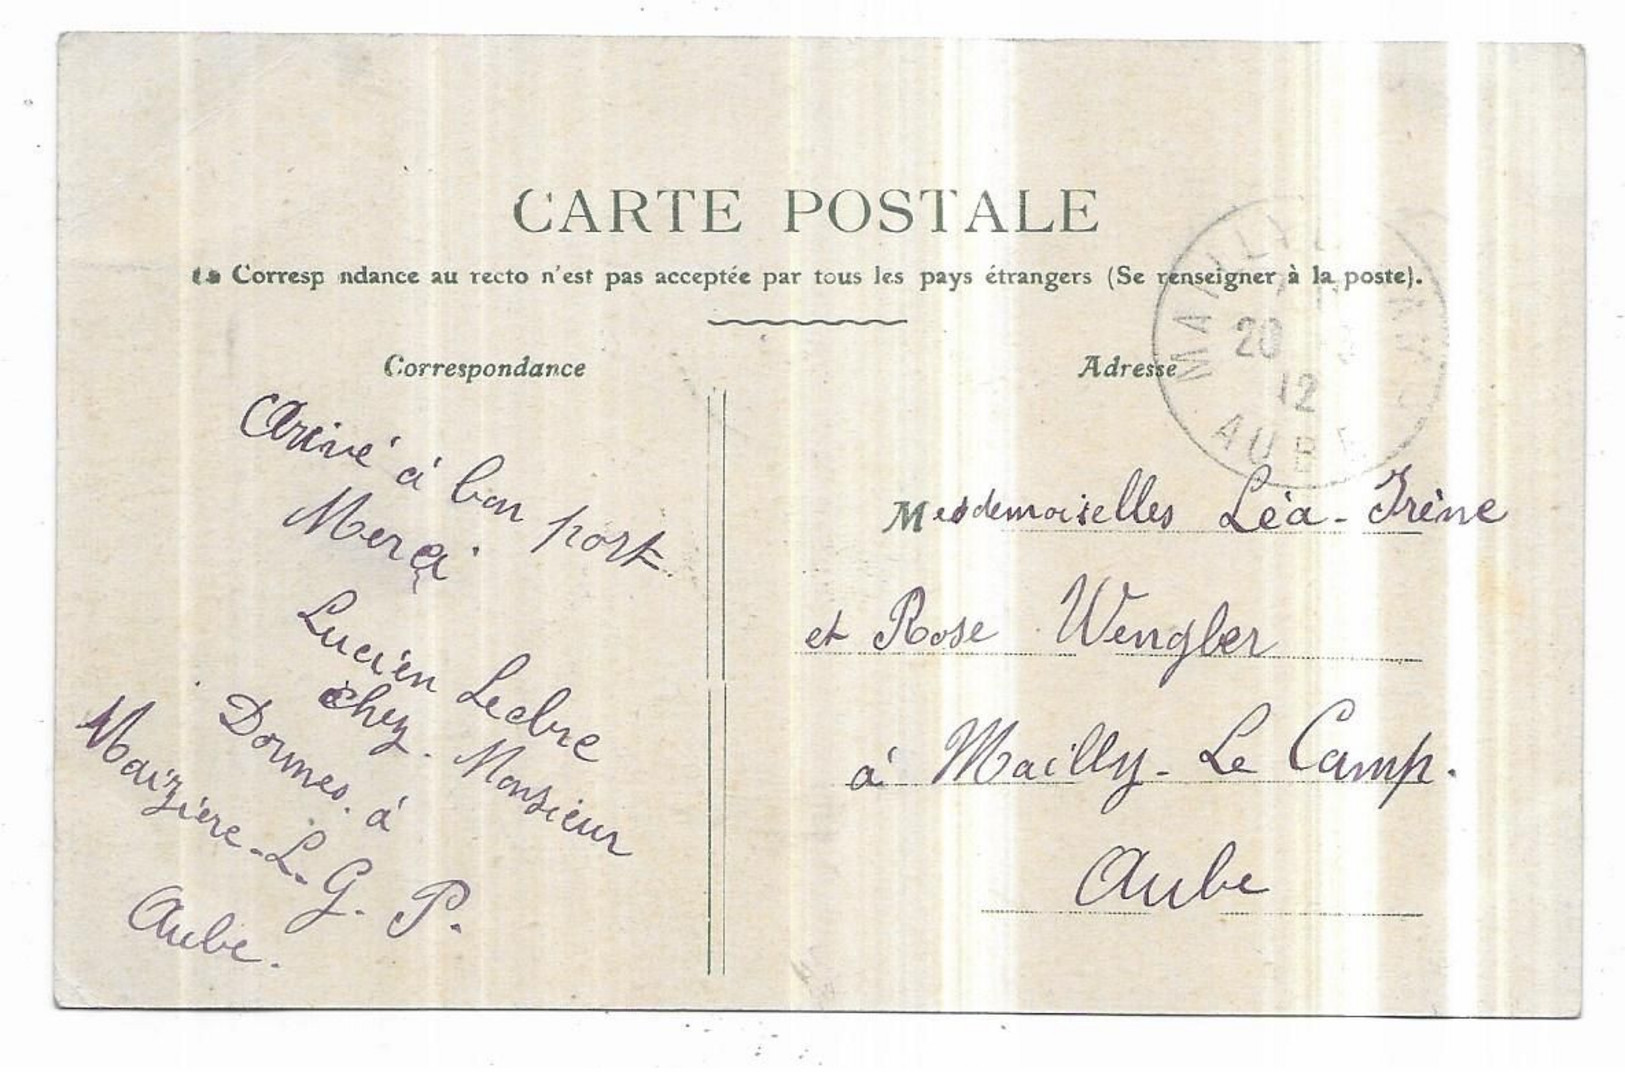 CARTE POSTALE
La Corresp ndance au recto n'est pas acceptée par tous les pays étrangers (Se renseigner à la poste).
Correspondance
Adresse
MAILLY
20
12
AUBE
Arivé à bon port.
Merci
Lucien
chez Monsieur
à
Maizière-L-G. P.
Aube.
Mesdemoiselles Léa-Irène
et Rose Wengler
à Mailly-Le Camp.
Aube